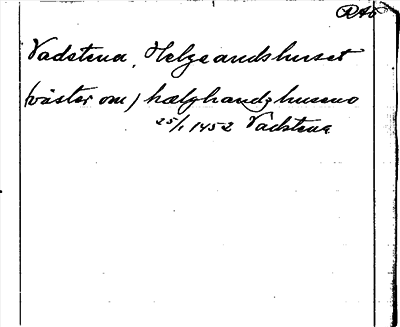 RAÖ
Vadstena, Helgeandshuset
(väster om) hælghandzhuseno
25/1 1452 Vadstena